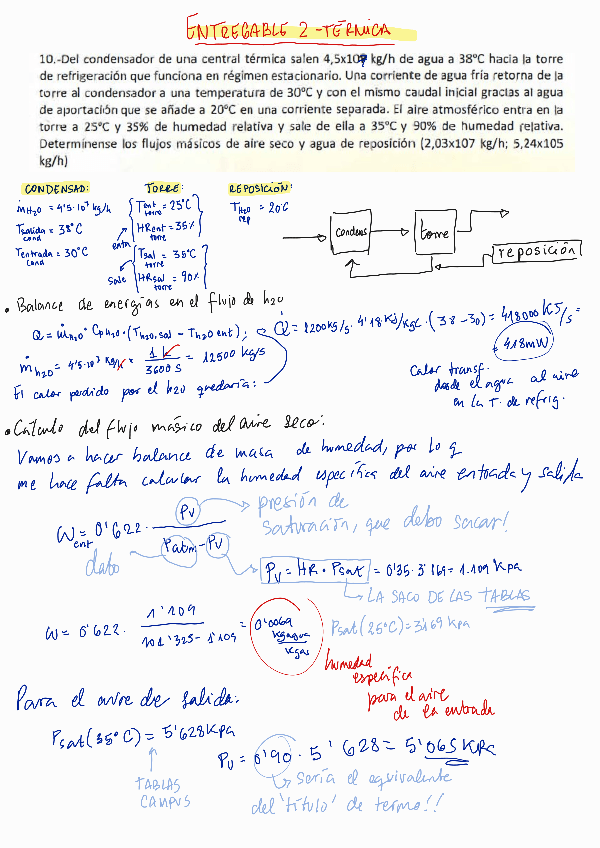 ENTREGABLE 2 - TÉRMICA
10.-Del condensador de una central térmica salen 4,5x107 kg/h de agua a 38ºC hacia la torre
de refrigeración que funciona en régimen estacionario. Una corriente de agua fría retorna de la
torre al condensador a una temperatura de 30ºC y con el mismo caudal inicial gracias al agua
de aportación que se añade a 20ºC en una corriente separada. El aire atmosférico entra en la
torre a 25ºC y 35% de humedad relativa y sale de ella a 35ºC y 90% de humedad relativa.
Determínense los flujos másicos de aire seco y agua de reposición (2,03x107 kg/h; 5,24x105
kg/h)
CONDENSAD:
ṁH2O = 4'5·10⁷ kg/h
Tsalida cond = 38ºC
Tentrada cond = 30ºC
TORRE:
entra
Tent torre = 25ºC
HRent torre = 35%
sale
Tsal torre = 35ºC
HRsal torre = 90%
REPOSICIÓN:
TH2O rep = 20ºC
condens
torre
reposición
• Balance de energías en el flujo de h2o
Q = ṁH2O · CpH2O · (Th2o,sal - Th2o ent); Q̇ = 12500 kg/s · 4'18 KJ/KgK · (38-30) = 418000 KJ/s =
= 418MW
ṁH2O = 4'5·10⁷ kg/h × 1h/3600 s = 12500 kg/s
El calor perdido por el h2o quedaría:
Calor transf.
desde el agua al aire
en la T. de refrig.
• Cálculo del flujo másico del aire seco:
Vamos a hacer balance de masa de humedad, por lo q
me hace falta calcular la humedad específica del aire entrada y salida
Went = 0'622 · Pv / (Patm - Pv)
presión de
saturación, que debo sacar!
dato
Pv = HR · Psat = 0'35 · 3'169 = 1.109 Kpa
LA SACO DE LAS TABLAS
W = 0'622 · 1'109 / (101'325 - 1'109) = 0'0069 kgagua/Kgas
Psat(25ºC) = 3'169 Kpa
humedad
específica
para el aire
de la entrada
Para el aire de salida:
Psat(35ºC) = 5'628 Kpa
Pv = 0'90 · 5'628 = 5'065 KPa
TABLAS
CAMPUS
Sería el equivalente
del 'título' de termo!!